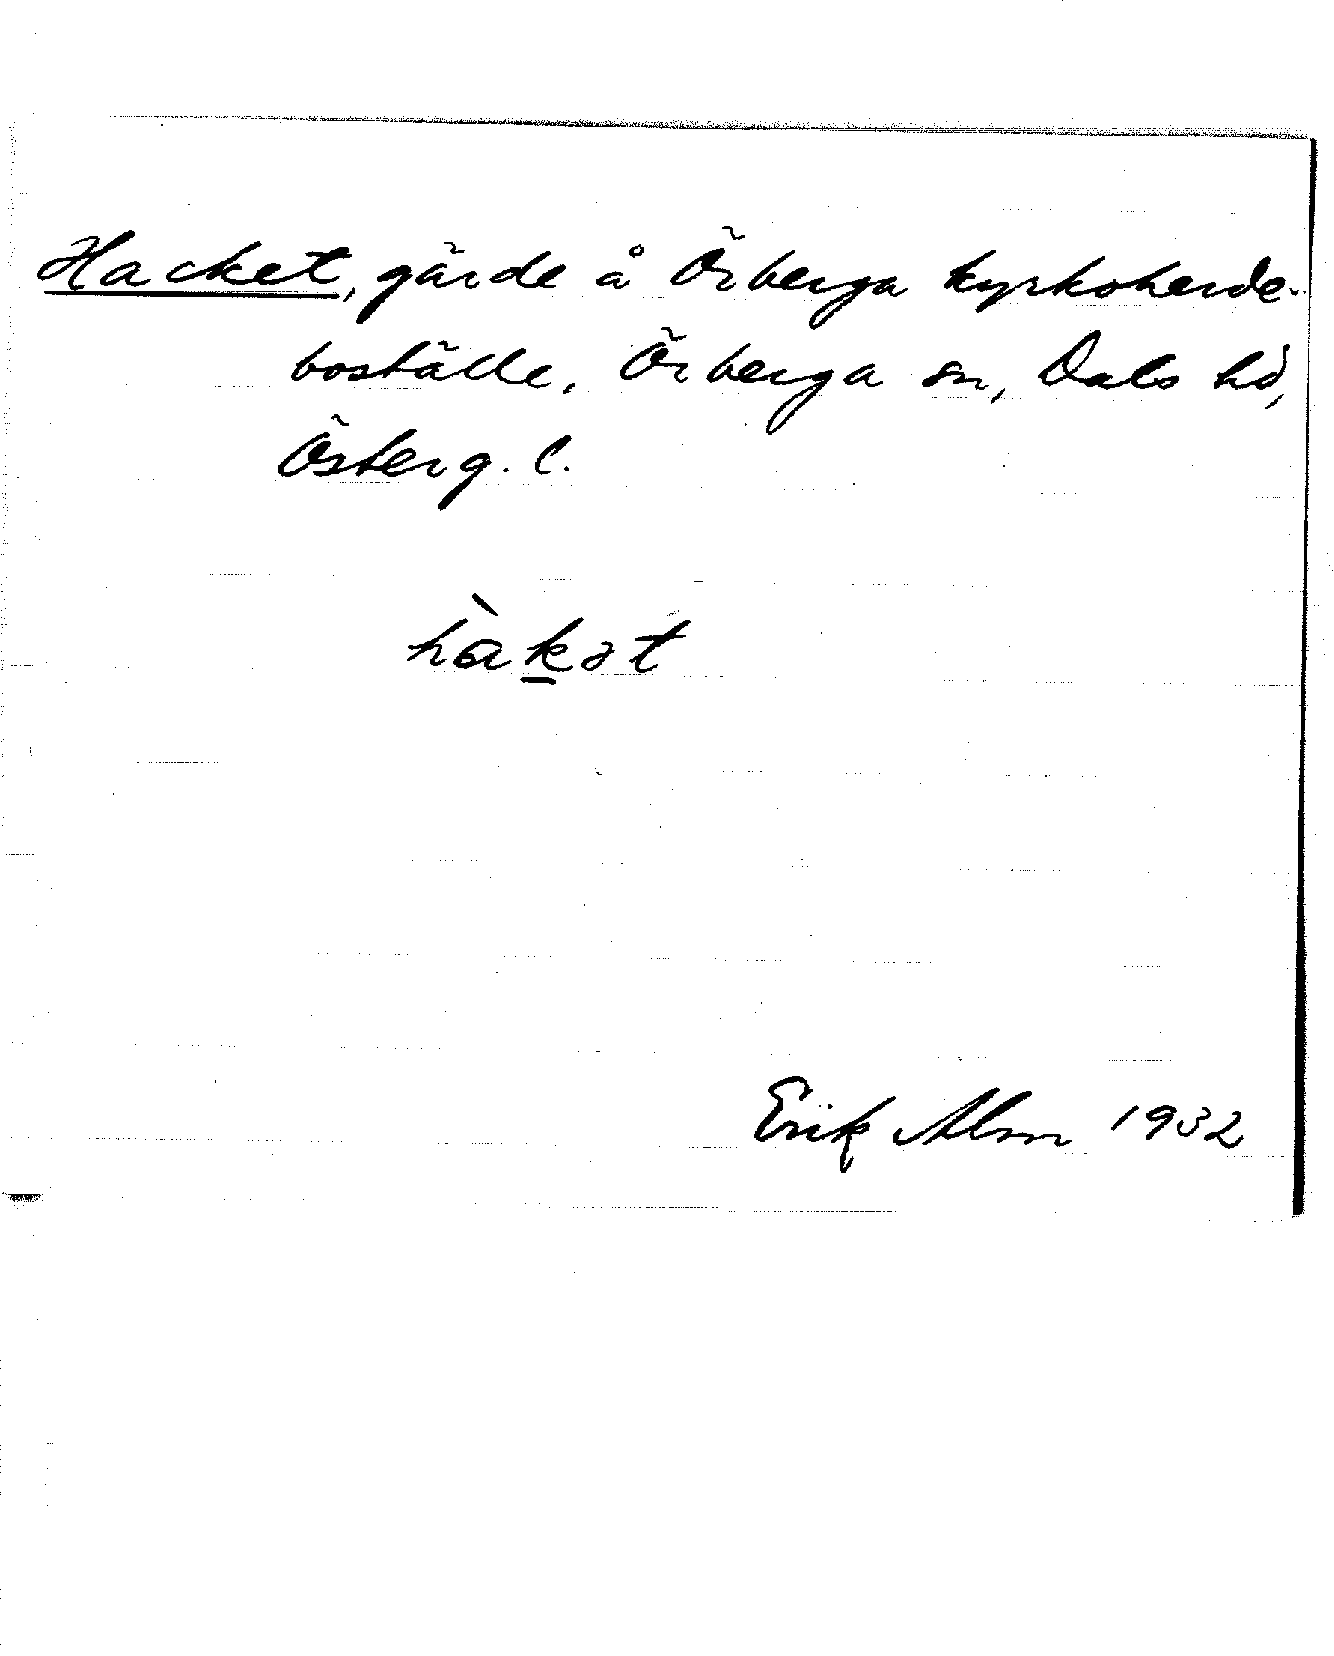 Hacket, gärde å Örberga kyrkoherde-
boställe, Örberga sn, Dals hd,
Österg. l.
hàk̲ət
Erik Alm 1932